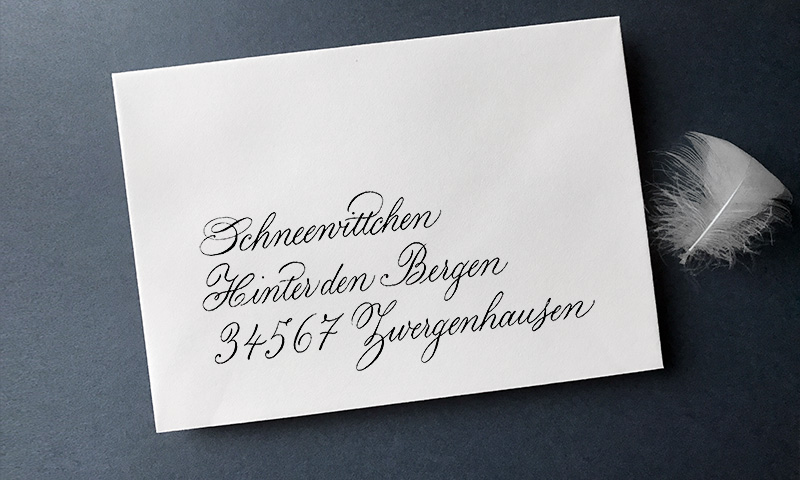 Schneewittchen
Hinter den Bergen
34567 Zwergenhausen